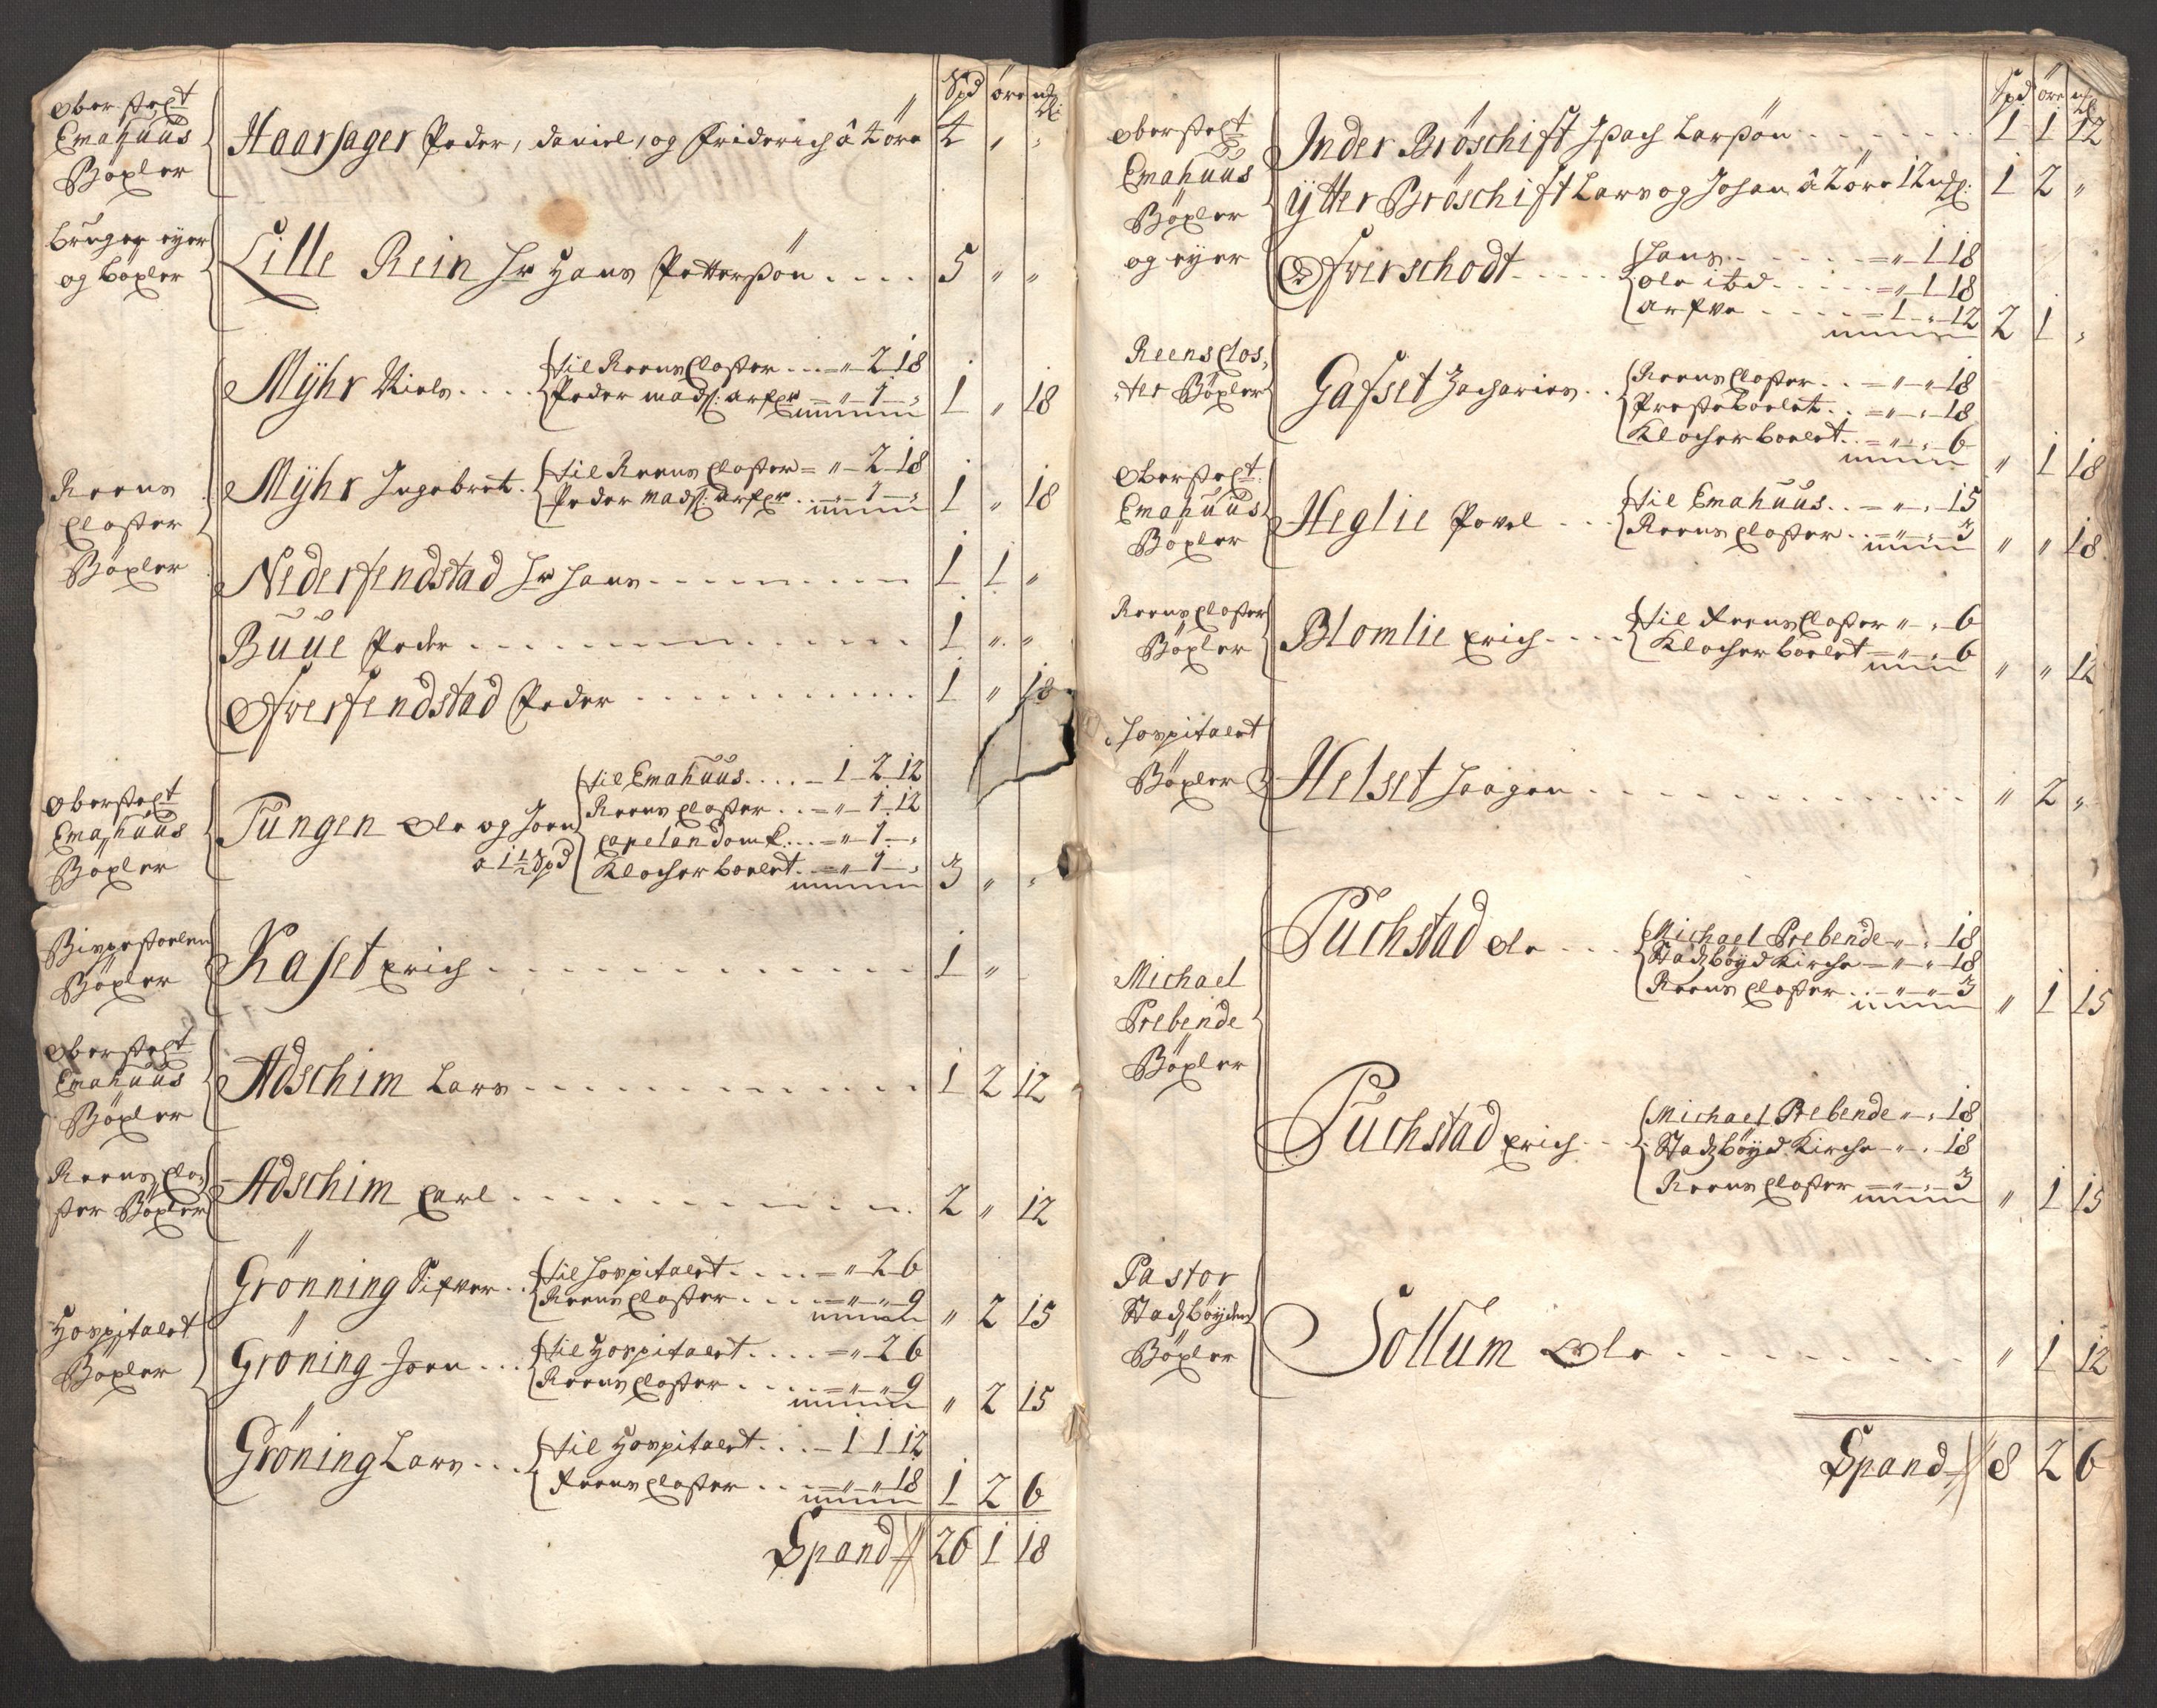 Spd öre mkl
Oberstelt
Emahuus
Böxler
Haarsager Peder, Daniel, og Friderich â 2 öre 2 " "
Bruger eyer
og böxler
Lille Rein Hr Hans Petterßön . . . . 5 " "
Reens
Closter
Böxler
Myhr Niels . . . . til Reens Closter . . . = " – 2 – 18
Peder Mads: arfr = " – 1 – " 1 " 18
Myhr Ingebret . til Reens Closter = " – 2 – 18
Peder Mads: arfr . . " – 1 – " 1 " 18
Nederfendstad Hr Hans . . . . . 1 1 "
Buue Peder . . . . . 1 " "
Ofverfendstad Peder . . . . . 1 " 18
Oberstelt
Emahuus
Böxler
Tungen Ole og Joen til Emahuus . . . . – 1 – 2 – 12
Reens Closter . . = " – 1 – 12
a 1 ½ Spd Capelan domk . . . = " – 1 – "
Klocherbolet . = " – 1 – " 3 " "
Bispestoelen
Böxler
Raset Erich . . . . . 1 "
Oberstelt
Emahuus
Böxler
Adschim Lars . . . . . 1 2 12
Reens Clo=
ster Böxler
Adschim Carl . . . . . 2 " 12
Hospitalet
Böxler
Grönning Sifver . . til Hospitalet . . . . = " 2 – 6
Reens Closter . . . . = " – " – 9 " 2 15
Gröning Joen . . . til Hospitalet . . . . = " 2 6
Reens Closter . . . = " – " 9 " 2 15
Gröning Lars . . . til Hospitalet . . . – 1 1 12
Reens Closter . . = " – " 18 1 2 6
Spand 26 1 18
Spd öre mkl
Oberstelt
Emahuus
Böxler
og eyer
Inder Bröschift Ißach Larßön . . . . . 1 1 12
Ytter Bröschift Lars og Johan â 2 öre 12 mk: 1 2 "
Ofverschodt . . . . . Hans . . . . . = " – 1 18
Ole ibd . . . . . = " 1 – 18
Arfve . . . . – = 1 – " – 12 2 1 "
Reensclos,
"ter Böxler
Gafset Zacharies . . Reens Closter . . – = " – " – 18
Prestebolet . . = " – " – 18
Klocherbolet . . = " – " – 6 " 1 18
Oberstelt
Emahuus
Böxler
Heglie Povel . . . til Emahuus . . – = " – " – 15
Reens Closter . . = " – " – 3 " " 18
Reens Closter
Böxler
Blomlie Erich . . . . til Reens Closter " – " 6
Klocherbolet = " – " – 6 " " 12
Hospitalet
Böxler
Helset Haagen . . . . . " 2 "
Michael
Prebende
Böxler
Puchstad Ole . . . Michael Prebende – " – " 18
Stadzböyd Kirche = " – " – 18
Reens Closter . . – " – " – 3 " 1 15
Puchstad Erich . . . Michael Prebende " – " 18
Stadzböyd Kirche – " – " 18
Reens Closter = " – " – 3 " 1 15
Pastor
Stadzböyden
Böxler
Sollum Ole . . . . . " 1 12
Spand 8 2 6